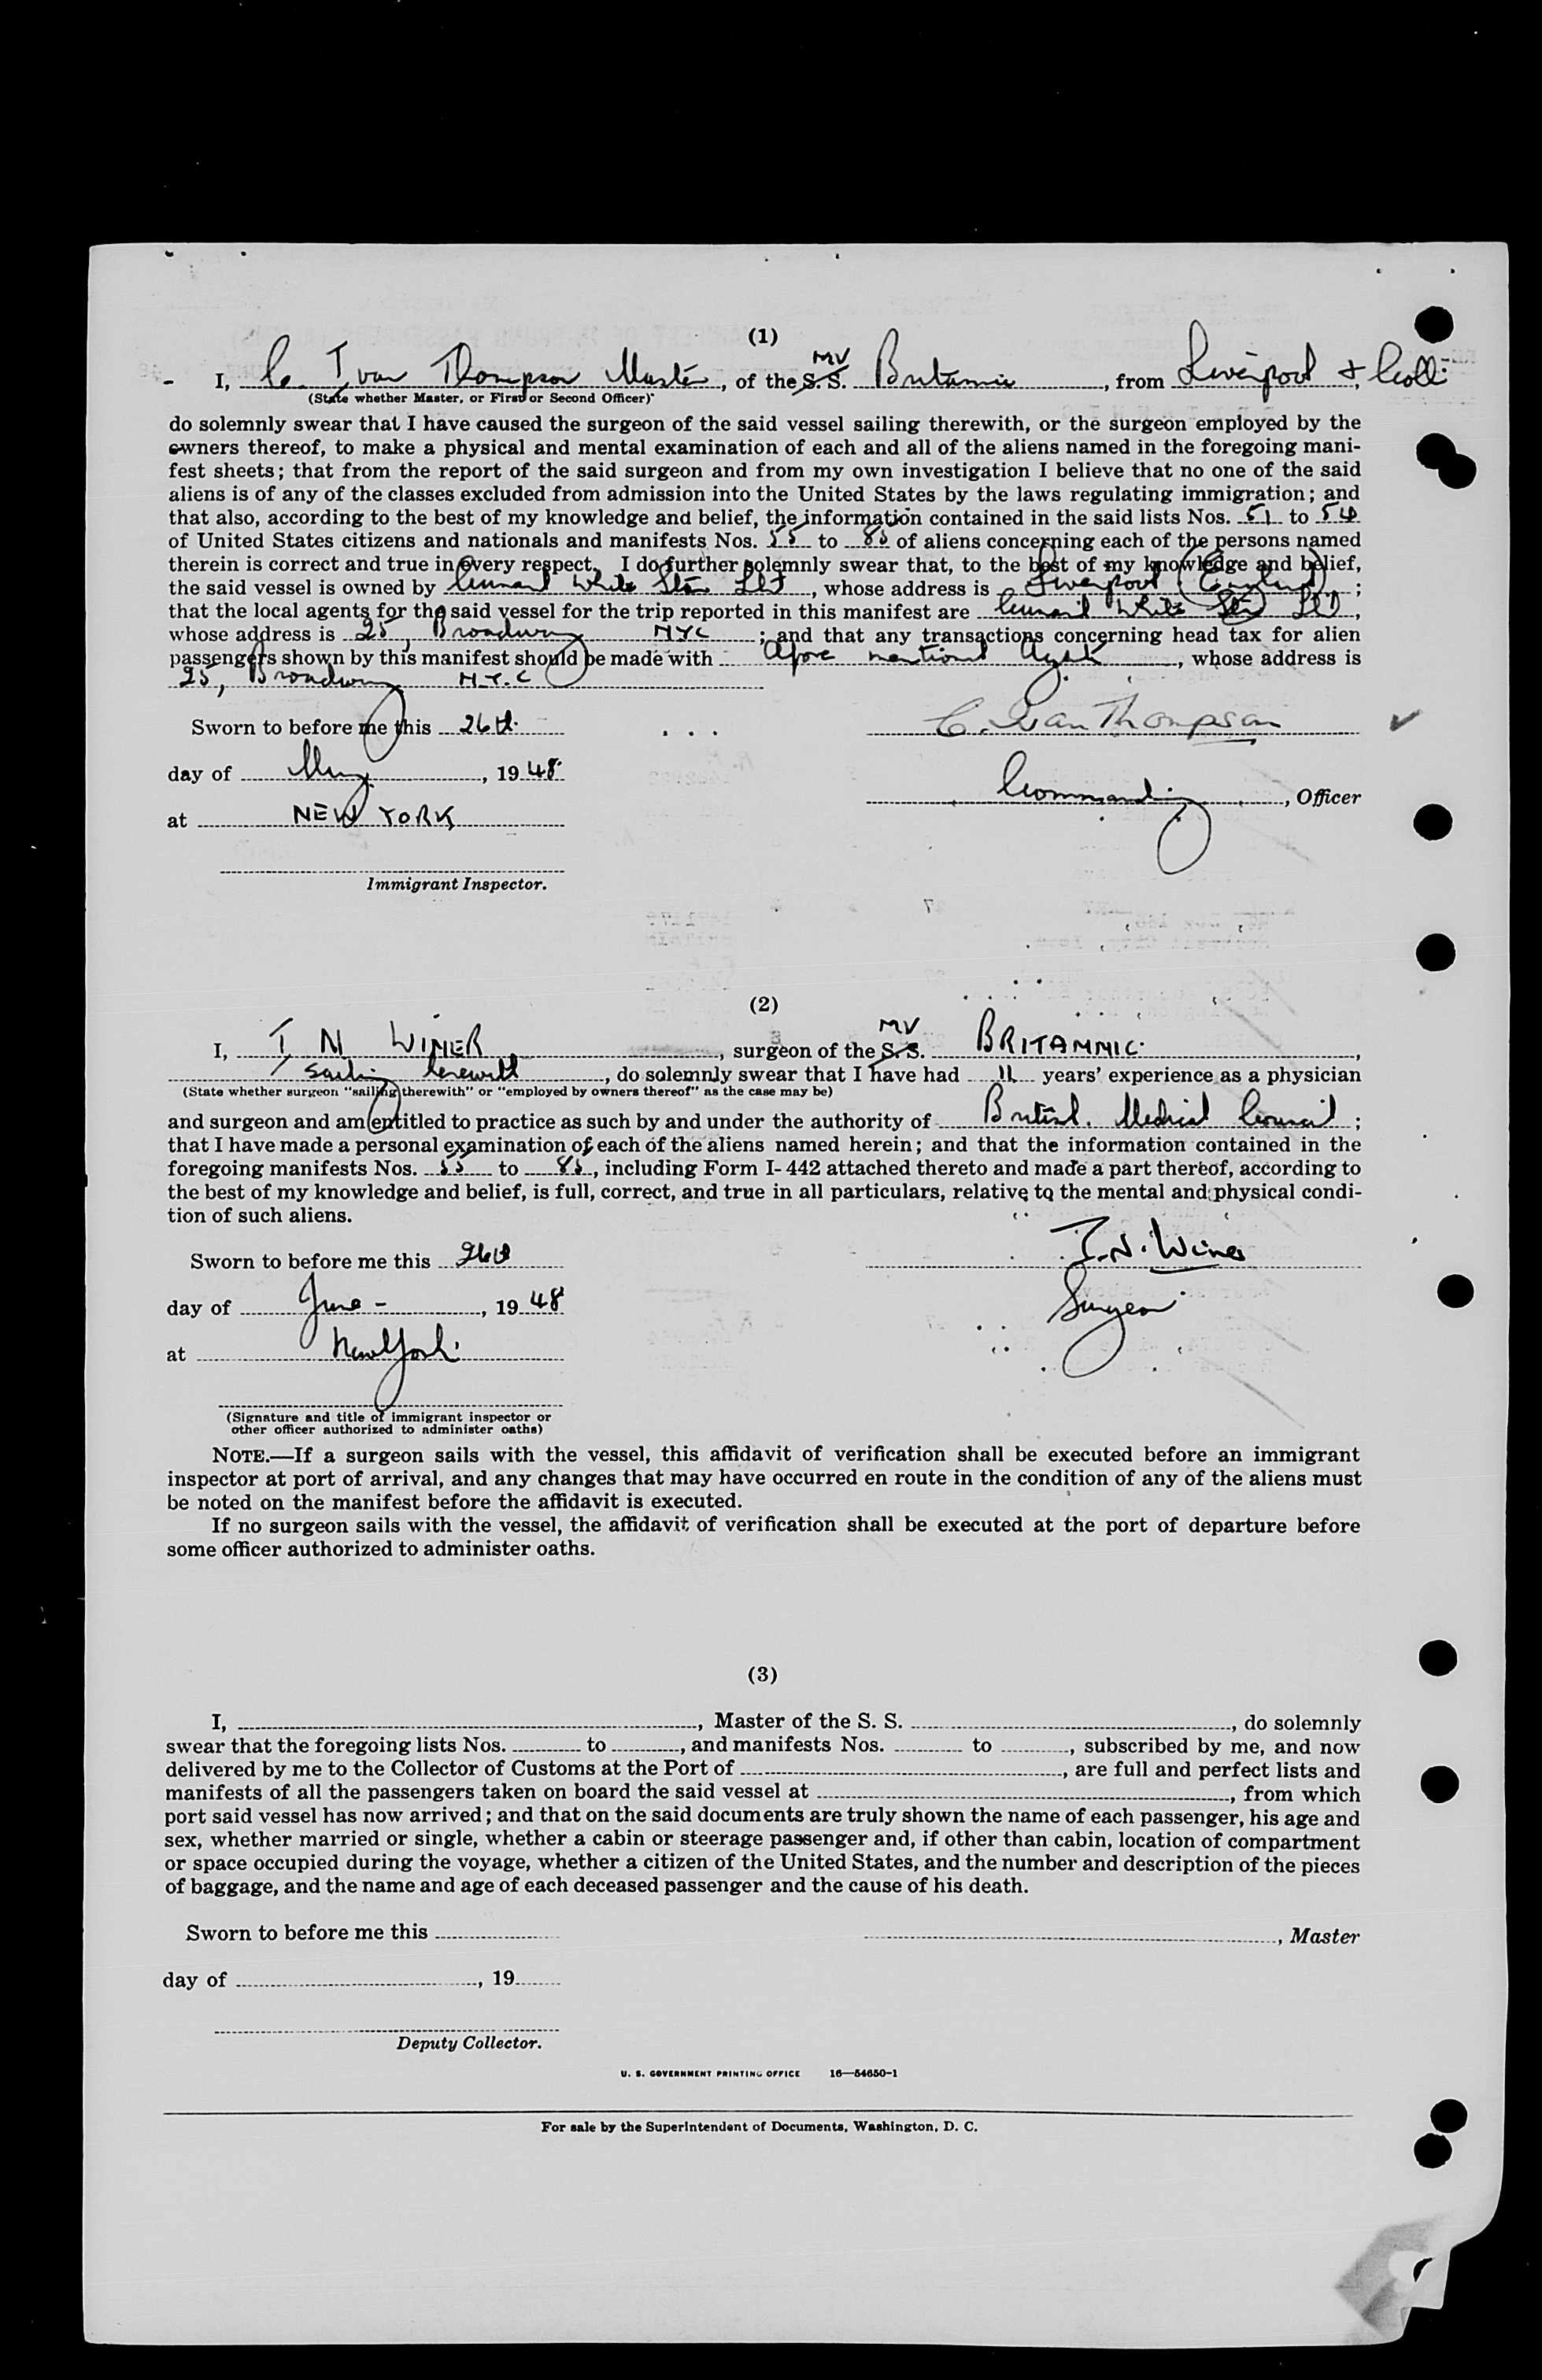 (1)
I, C. Ivan Thompson Master, of the S. S. MV Britannic, from Liverpool &
(State whether Master, or First or Second Officer)
do solemnly swear that I have caused the surgeon of the said vessel sailing therewith, or the surgeon employed by the
owners thereof, to make a physical and mental examination of each and all of the aliens named in the foregoing mani-
fest sheets; that from the report of the said surgeon and from my own investigation I believe that no one of the said
aliens is of any of the classes excluded from admission into the United States by the laws regulating immigration; and
that also, according to the best of my knowledge and belief, the information contained in the said lists Nos. 51 to 54
of United States citizens and nationals and manifests Nos. 55 to 85 of aliens concerning each of the persons named
therein is correct and true in every respect. I do further solemnly swear that, to the best of my knowledge and belief,
the said vessel is owned by Cunard White Star Ltd, whose address is Liverpool (England);
that the local agents for the said vessel for the trip reported in this manifest are Cunard White Star Ltd,
whose address is 25, Broadway NYC; and that any transactions concerning head tax for alien
passengers shown by this manifest should be made with Afore mentioned Agents, whose address is
25, Broadway N.Y.C
Sworn to before me this 26th C. Ivan Thompson
day of May, 1948 Commanding, Officer
at NEW YORK
Immigrant Inspector.
(2)
I, I N WINER, surgeon of the S.S. MV BRITANNIC,
sailing herewith, do solemnly swear that I have had 11 years' experience as a physician
(State whether surgeon "sailing therewith" or "employed by owners thereof" as the case may be)
and surgeon and am entitled to practice as such by and under the authority of British Medical Council;
that I have made a personal examination of each of the aliens named herein; and that the information contained in the
foregoing manifests Nos. 55 to 85, including Form I-442 attached thereto and made a part thereof, according to
the best of my knowledge and belief, is full, correct, and true in all particulars, relative to the mental and physical condi-
tion of such aliens.
Sworn to before me this 26th I.N. Winer
day of June, 1948 Surgeon
at New York
(Signature and title of immigrant inspector or
other officer authorized to administer oaths)
NOTE.—If a surgeon sails with the vessel, this affidavit of verification shall be executed before an immigrant
inspector at port of arrival, and any changes that may have occurred en route in the condition of any of the aliens must
be noted on the manifest before the affidavit is executed.
If no surgeon sails with the vessel, the affidavit of verification shall be executed at the port of departure before
some officer authorized to administer oaths.
(3)
I, , Master of the S. S. , do solemnly
swear that the foregoing lists Nos. to , and manifests Nos. to , subscribed by me, and now
delivered by me to the Collector of Customs at the Port of , are full and perfect lists and
manifests of all the passengers taken on board the said vessel at , from which
port said vessel has now arrived; and that on the said documents are truly shown the name of each passenger, his age and
sex, whether married or single, whether a cabin or steerage passenger and, if other than cabin, location of compartment
or space occupied during the voyage, whether a citizen of the United States, and the number and description of the pieces
of baggage, and the name and age of each deceased passenger and the cause of his death.
Sworn to before me this , Master
day of , 19
Deputy Collector.
U. S. GOVERNMENT PRINTING OFFICE 16—54650-1
For sale by the Superintendent of Documents, Washington, D. C.